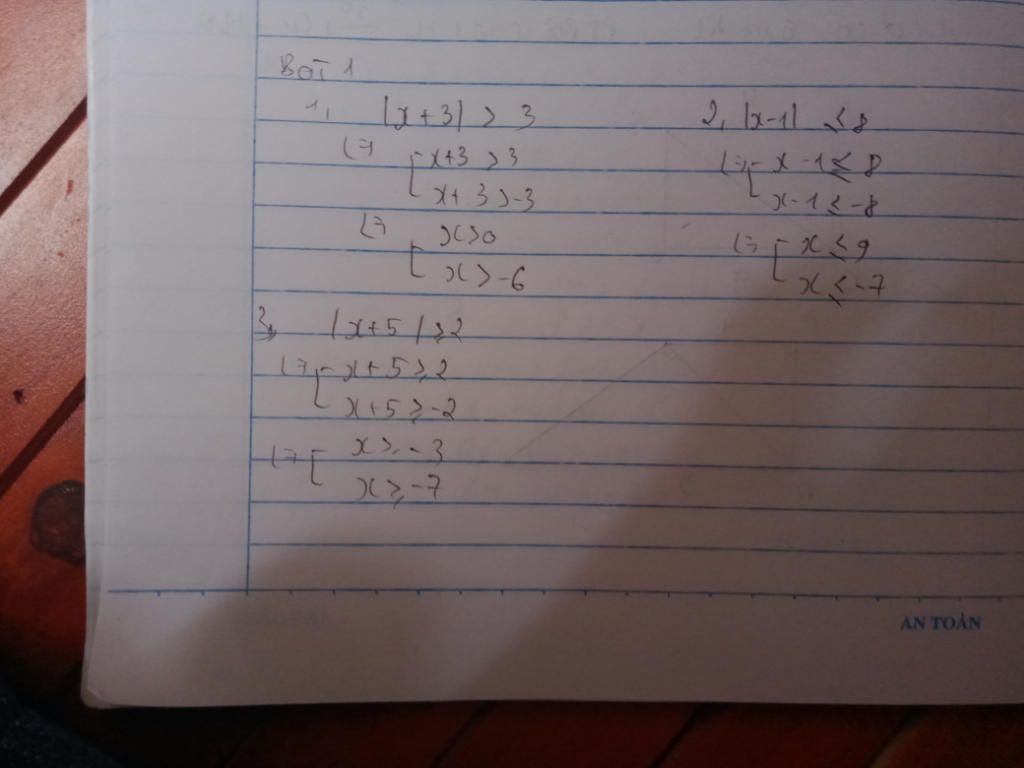 Bài 1
1, |x+3| > 3
<=> [ x+3 > 3
x+3 > -3
<=> [ x > 0
x > -6
2, |x-1| ≤ 8
<=> [ x-1 ≤ 8
x-1 ≤ -8
<=> [ x ≤ 9
x ≤ -7
3, |x+5| ≥ 2
<=> [ x+5 ≥ 2
x+5 ≥ -2
<=> [ x ≥ -3
x ≥ -7
AN TOÀN